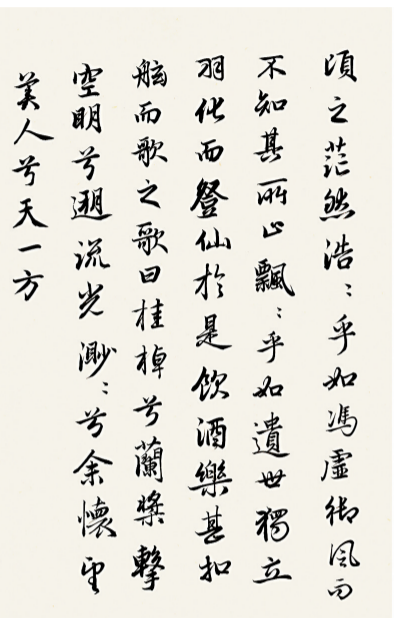 頃之茫然浩〻乎如馮虛御風而
不知其所止飄〻乎如遺世獨立
羽化而登仙於是飲酒樂甚扣
舷而歌之歌曰桂棹兮蘭槳擊
空明兮遡流光渺〻兮余懷望
美人兮天一方